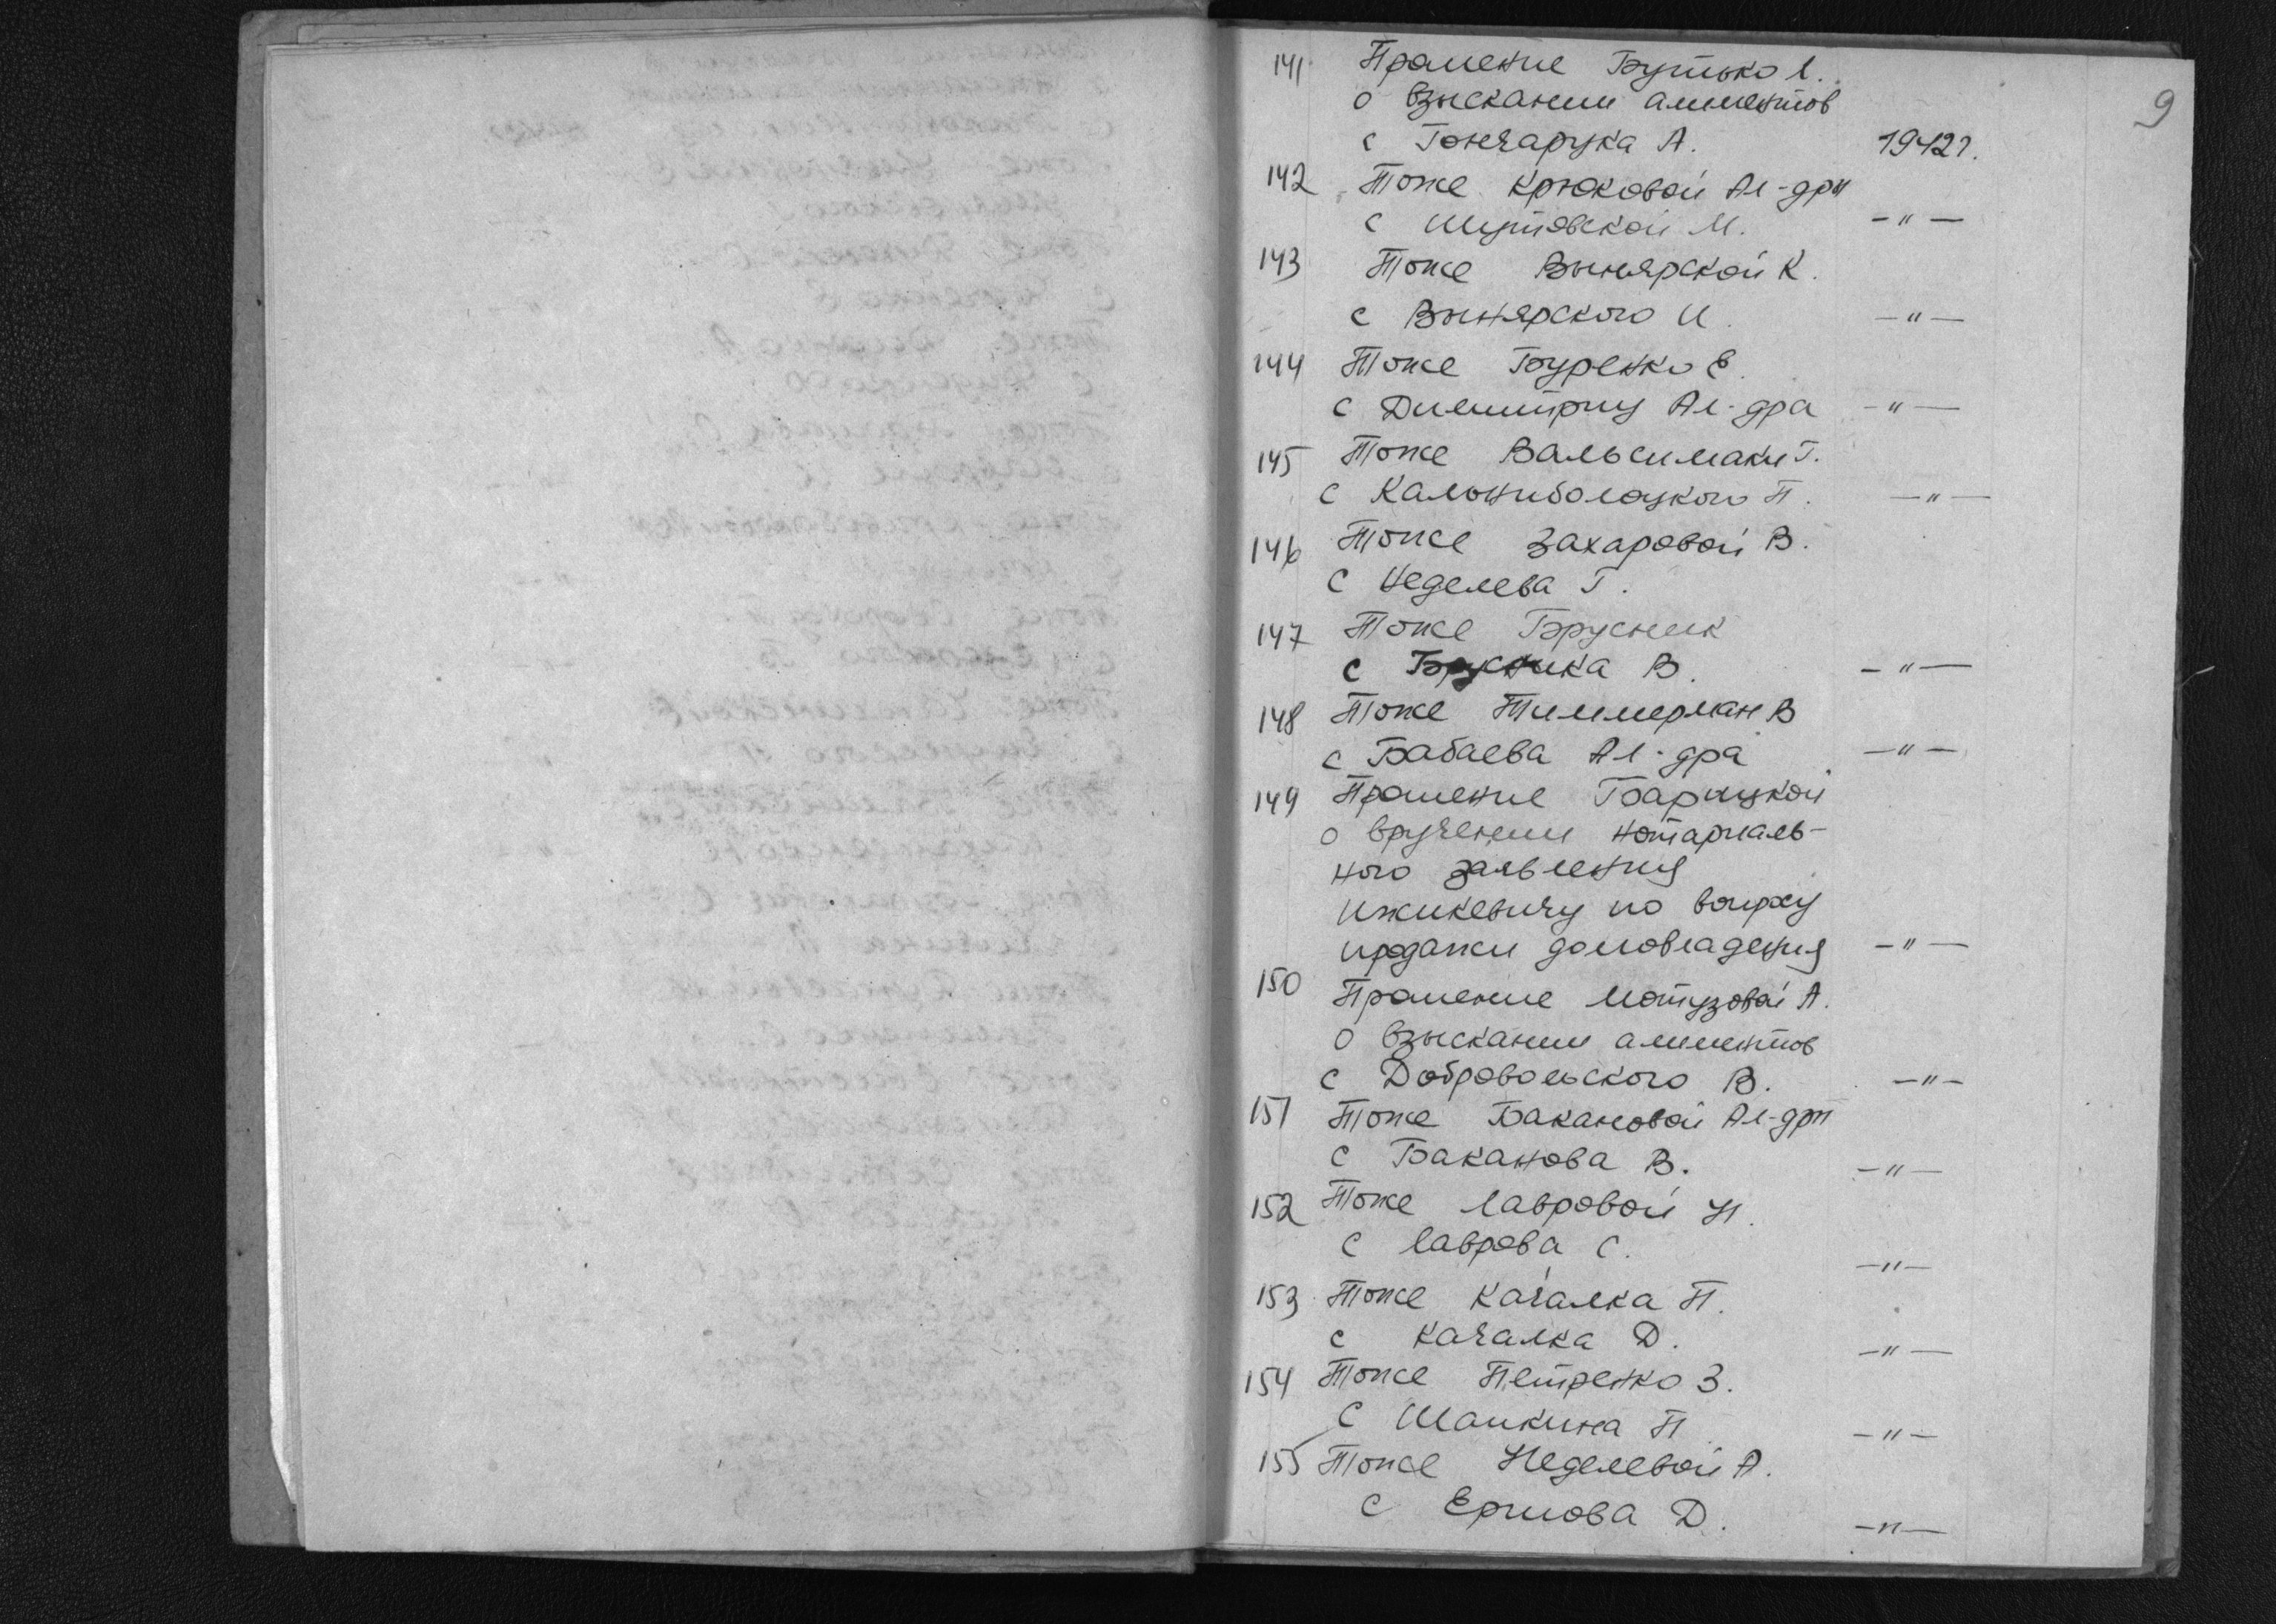 9
141 Прошение Бутько Л.
о взыскании алиментов
с Гончарука А. 1942 г.
142 Тоже Крюковой Ал-дры
с Шутовской М. -"-
143 Тоже Вынярской К.
с Вынярского И. -"-
144 Тоже Буренко Е.
с Димитриу Ал-дра -"-
145 Тоже Вальсимаки Г.
с Кальниболоцкого П. -"-
146 Тоже Захаровой В.
с Неделева Г.
147 Тоже Брусник
с Брусника В. -"-
148 Тоже Тиммерман В
с Бабаева Ал-дра -"-
149 Прошение Барицкой
о вручении нотариаль-
ного заявления
Ижикевичу по
продажи домовладения -"-
150 Прошение Мотузовой А.
о взыскании алиментов
с Добровольского В. -"-
151 Тоже Бакановой Ал-дры
с Баканова В. -"-
152 Тоже Лавровой Н.
с Лаврова С. -"-
153 Тоже Качалка П.
с Качалка Д. -"-
154 Тоже Петренко З.
с Шапкина П -"-
155 Тоже Неделевой А.
с Ершова Д. -"-